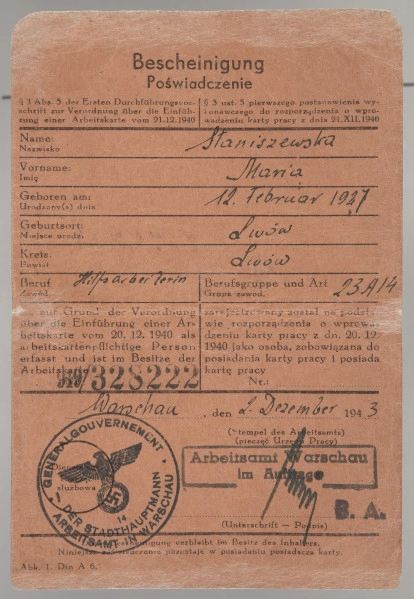 Bescheinigung
Poświadczenie
§ 3 Abs. 5 der Ersten Durchführungsvor-
schrift zur Verordnung über die Einfüh-
rung einer Arbeitskarte vom 21.12.1940
§ 3 ust. 5 pierwszego postanowienia wy-
konawczego do rozporządzenia o wpro-
wadzeniu karty pracy z dnia 21.XII.1940
Name: Staniszewska
Nazwisko
Vorname: Maria
Imię
Geboren am: 12. Februar 1927
Urodzony(a) dnia
Geburtsort: Lwów
Miejsce urodz.
Kreis: Lwów
Powiat
Beruf Hilfsarbeiterin
Zawód
Berufsgruppe und Art 23A14
Grupa zawod.
auf Grund der Verordnung
über die Einführung einer Ar-
beitskarte vom 20. 12. 1940 als
arbeitskartenpflichtige Person
erfasst und ist im Besitze der
Arbeitskarte
328222
zarejestrowany został na podsta-
wie rozporządzenia o wprowa-
dzeniu karty pracy z dn. 20. 12.
1940 jako osoba, zobowiązana do
posiadania karty pracy i posiada
kartę pracy
Nr.:
Warschau, den 2. Dezember 1943
(Stempel des Arbeitsamts)
(pieczęć Urzędu Pracy)
Arbeitsamt Warschau
im Auftrage
B. A.
GENERALGOUVERNEMENT
DER STADTHAUPTMANN
ARBEITSAMT IN WARSCHAU
14
służbowa
(Unterschrift — Podpis)
Bescheinigung verbleibt im Besitz des Inhabers.
Niniejsze zaświadczenie pozostaje w posiadaniu posiadacza karty.
Abk. 1. Din A 6.